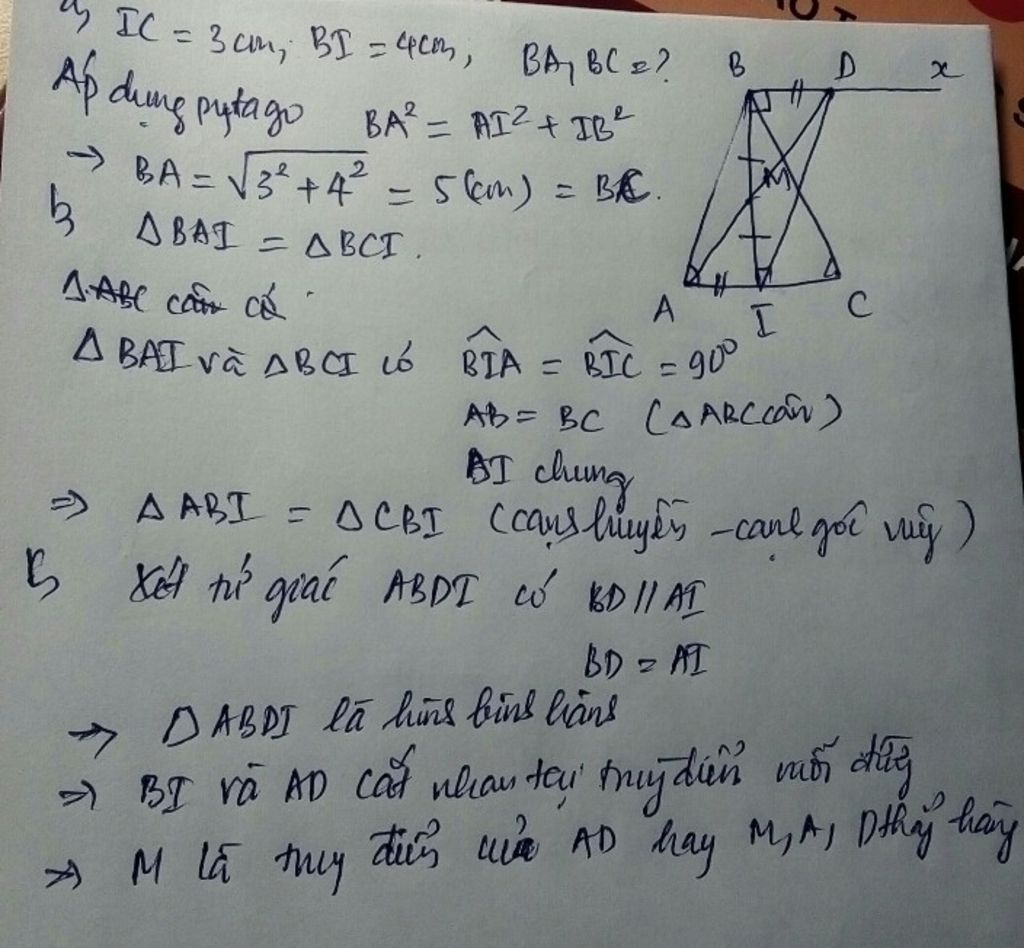 a) IC = 3 cm; BI = 4cm, BA, BC = ?
Áp dụng pytago BA² = AI² + IB²
→ BA = √3² + 4² = 5 (cm) = BC.
b) ΔBAI = ΔBCI.
Δ BAI và ΔBCI có BIA = BIC = 90⁰
AB = BC (ΔABC cân)
BI chung
⇒ Δ ABI = Δ CBI (cạnh huyền - cạnh góc vuông)
Xét tứ giác ABDI có BD // AI
BD = AI
→ ABDI là hình bình hành
⇒ BI và AD cắt nhau tại trung điểm mỗi đường
⇒ M là trung điểm của AD hay M, A, D thẳng hàng
B D x
M
A I C